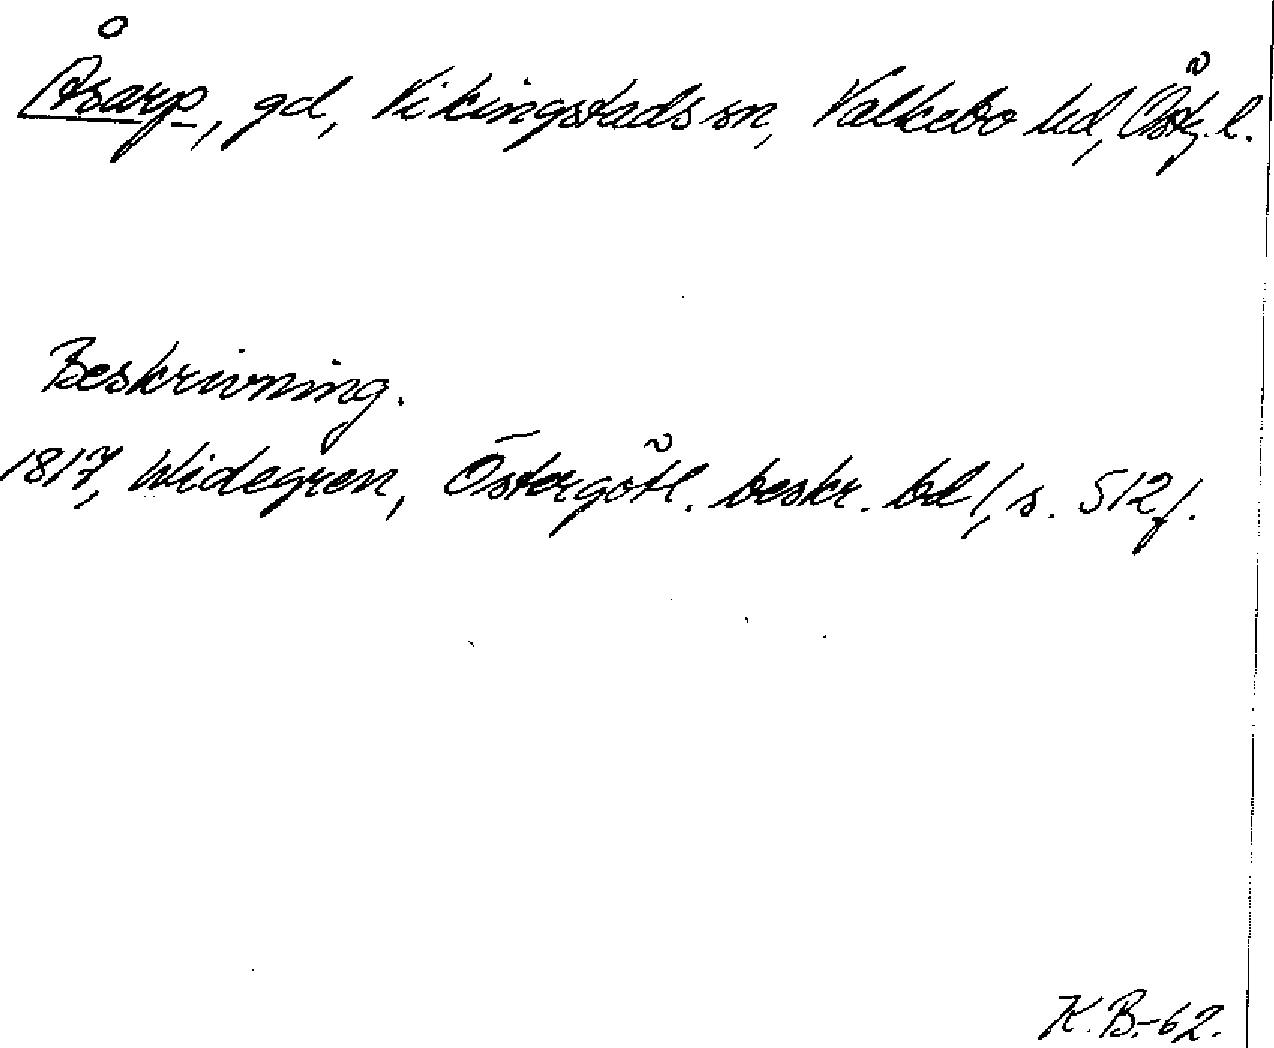 Åsarp, gd, Vikingstads sn, Valkebo hd, Östg. l.
Beskrivning.
1817, Widegren, Östergötl. beskr. bd 1, s. 512 f.
K.B.-62.